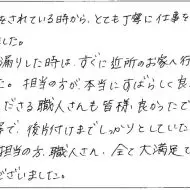 をされている時から、とても丁寧に仕事を
ました。
漏りした時は、すぐに近所のお家へ行
た。担当の方が、本当にすばらしく良
ださる職人さんも皆様、良かったで
寧で、後片付けまでしっかりとしていた
担当の方、職人さん、全て大満足で
ございました。